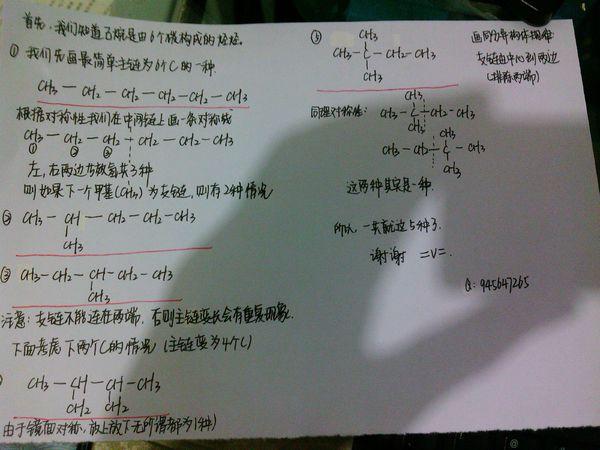 首先，我们知道己烷是由6个碳构成的烷烃。
① 我们先画最简单主链为6个C的一种
CH3 — CH2 — CH2 — CH2 — CH2 — CH3
根据对称性我们在中间链上画一条对称线
CH3 — CH2 — CH2 — CH2 — CH2 — CH3
① ② ③
左，右两边
则如果下一个甲基(CH3)为支链，则有2种情况
② CH3 — CH — CH2 — CH2 — CH3
CH3
③ CH3 — CH2 — CH — CH2 — CH3
CH3
注意：支链不能连在两端，否则主链变长会有重复现象.
下面考虑下两个C的情况（主链变为4个C）
CH3 — CH — CH — CH3
CH2 CH2
由于镜面对称，放上放下无所谓都为1种）
⑤
CH3
CH3 — C — CH2 — CH3
CH3
画同分异构体规律
支链由中心到两边
（排除两端）
同理对称性：
CH3
CH3 — C — CH2 — CH3
CH3
CH3
CH3 — CH2 — C — CH3
CH3
这两种其实是一种.
所以，一共就这5种了.
谢谢 =v=.
Q: 945647265